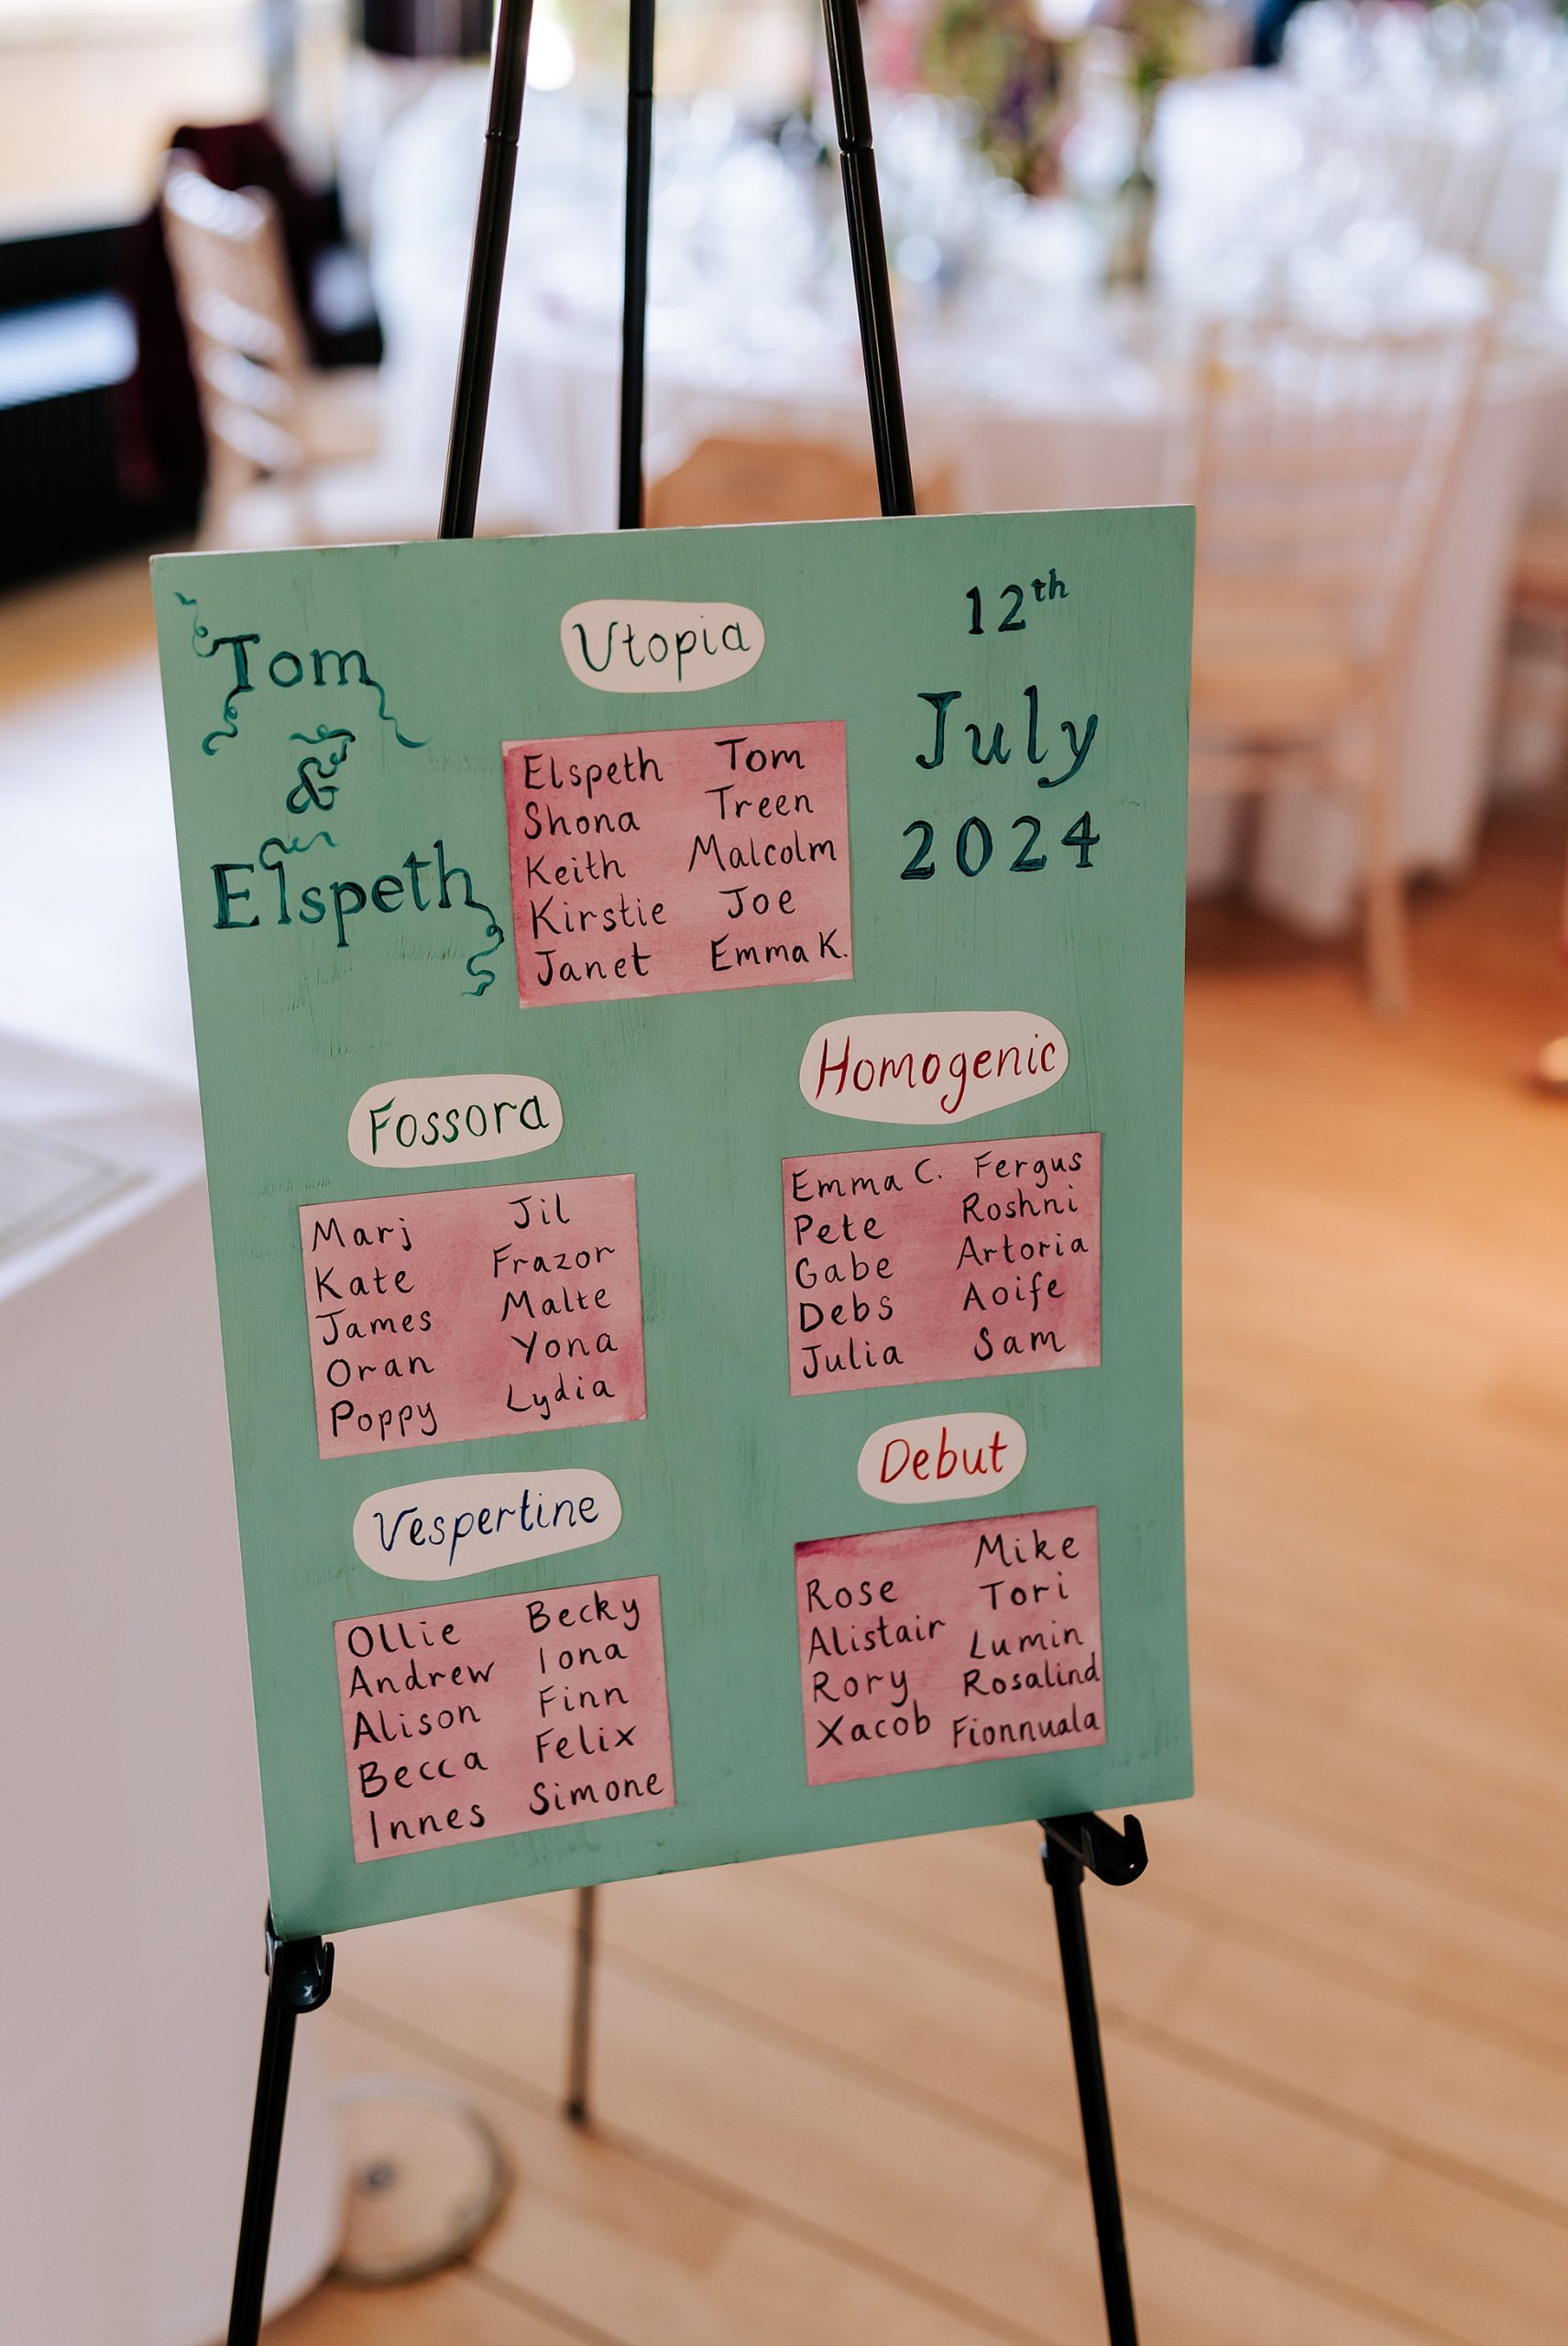 Tom
&
Elspeth
12th
July
2024
Utopia
Elspeth Tom
Shona Treen
Keith Malcolm
Kirstie Joe
Janet Emma K.
Fossora
Marj Jil
Kate Frazor
James Malte
Oran Yona
Poppy Lydia
Homogenic
Emma C. Fergus
Pete Roshni
Gabe Artoria
Debs Aoife
Julia Sam
Vespertine
Ollie Becky
Andrew Iona
Alison Finn
Becca Felix
Innes Simone
Debut
Mike
Rose Tori
Alistair Lumin
Rory Rosalind
Xacob Fionnuala